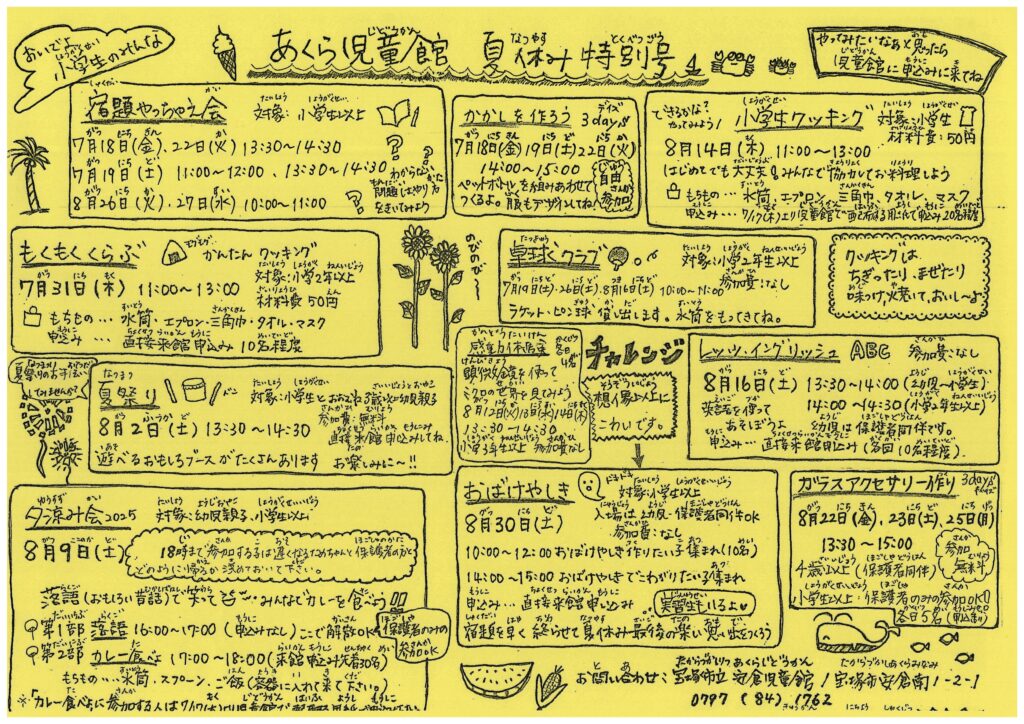 おいでよ
小学生のみんな
あくら児童館 夏休み特別号
やってみたいなぁと思ったら
児童館に申込みに来てね
宿題やっちゃえ会
対象:小学生以上
7月18日(金)、22日(火) 13:30〜14:30
7月19日(土) 11:00〜12:00、13:30〜14:30
8月26日(火)、27日(水) 10:00〜11:00
わからない
問題はやり方
をきいてみよう
かかしを作ろう 3days
7月18日(金)19日(土)22日(火)
14:00〜15:00
ペットボトルを組みあわせて
つくるよ。服もデザインしてね!
自由
参加
できるかな?
やってみよう!
小学生クッキング
対象:小学生
材料費:50円
8月14日(木) 11:00〜13:00
はじめてでも大丈夫 みんなで協力してお料理しよう
もちもの…水筒・エプロン・三角巾、タオル、マスク
申込み…7/17(木)より児童館で配布する用紙にて申込み 20名程度
もくもくくらぶ
モグモグ
かんたん クッキング
対象:小学2年以上
材料費 50円
7月31日(木) 11:00〜13:00
もちもの…水筒・エプロン・三角巾・タオル・マスク
申込み…直接来館申込み 10名程度
卓球クラブ
対象:小学2年生以上
参加費:なし
7月19日(土)・26日(土)、8月16日(土) 10:00〜11:00
ラケット・ピン球 貸し出します。水筒をもってきてね。
クッキングは、
ちぎったり、まぜたり
味つけ、焼いて、おいし〜よ
夏祭りのお手伝い
しませんか?
夏祭り
対象:小学生とおおむね3歳以上の幼児親子
参加費:無料
8月2日(土) 13:30〜14:30
直接来館申込みしてね。
遊べるおもしろブースがたくさんあります
お楽しみに〜!!
各日
4名
顕微鏡を使って
ミクロの世界を見てみよう
8月12日(火)13日(水)14日(木)
13:30〜14:30
小学3年生以上 参加費なし
チャレンジ
想像以上に
こわいです。
レッツ・イングリッシュ ABC 参加費:なし
8月16日(土) 13:30〜14:00(幼児〜小学生)
14:00〜14:30(小学2年生以上)
英語を使って
あそぼうよ
幼児は保護者同伴です。
申込み…直接来館申込み(各回10名程度)
夕涼み会2025
対象:幼児親子、小学生以上
8月9日(土)
18時まで参加する子は遅くなるためちゃんと保護者の方と
どのように帰るか決めておいて下さい。
落語(おもしろい昔話)で笑って みんなでカレーを食べよう!!
第1部 落語 16:00〜17:00(申込みなし)ここで解散OK
第2部 カレー食べよ 17:00〜18:00(来館申込み先着30名)
保護者のみの
参加OK
もちもの…水筒、スプーン、ご飯(容器に入れて来て下さい。)
おばけやしき
ドキドキ
対象:小学生以上
入場は幼児・保護者同伴OK
参加費:なし
8月30日(土)
10:00〜12:00 おばけやしき作りたい子集まれ(10名)
14:00〜15:00 おばけやしきでこわがりたい子集まれ
申込み…直接来館申し込み
実習生もいるよ
宿題を早く終らせて夏休み最後の楽しい思い出をつくろう
ガラスアクセサリー作り 3days
8月22日(金)、23日(土)、25日(月)
13:30〜15:00
4歳以上(保護者同伴)
小学生以上:保護者のみの参加OK!!
各日5名(申込あり)
参加
無料
お問い合わせ:宝塚市立安倉児童館/宝塚市安倉南1-2-1
0797(84)1762